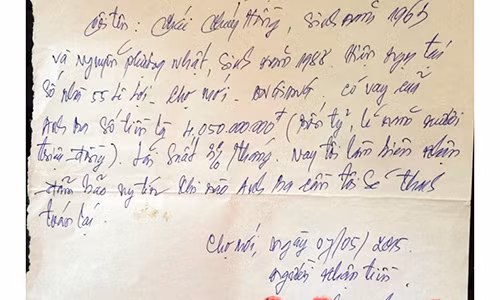 Tôi tên : Thái Thúy Hồng, Sinh năm 1965
và Nguyễn phương Nhật, Sinh năm 1988. Hiện ngụ tại
Số nhà 55 Lê Lợi - Chợ mới - An Giang. Có vay của
Anh Ba Số tiền là 4.050.000.000đ (bốn tỷ, lẻ năm mươi
triệu đồng). Lãi Suất 2%/tháng. Nay tôi làm biên nhận
đảm bảo uy tín khi nào Anh Ba cần tôi Sẽ thanh
toán lại.
Chợ mới, ngày 07/05/2015
người nhận tiền.